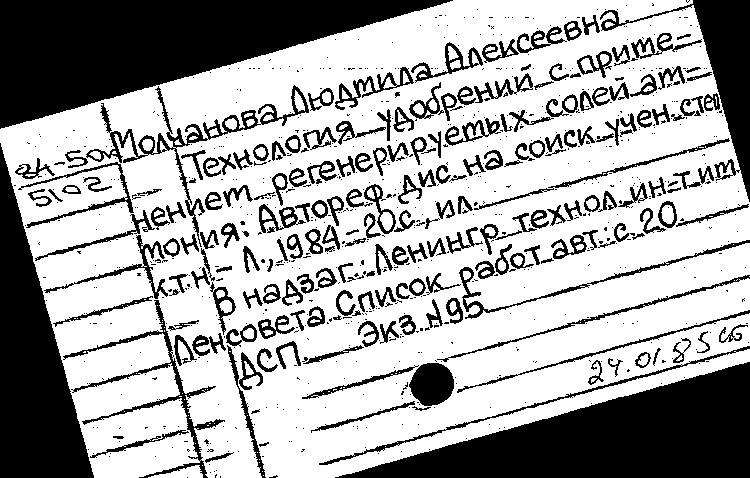 Молчанова, Людмила Алексеевна
24-50
5102
Технология удобрений с приме-
нением регенерируемых солей ам-
мония: Автореф дис на соиск учен степ
к.т.н. - Л., 1984 - 20с, ил.
В надзаг.: Ленингр технол. ин-т им
Ленсовета Список работ авт.: с 20
ДСП Экз N95
24.01.85